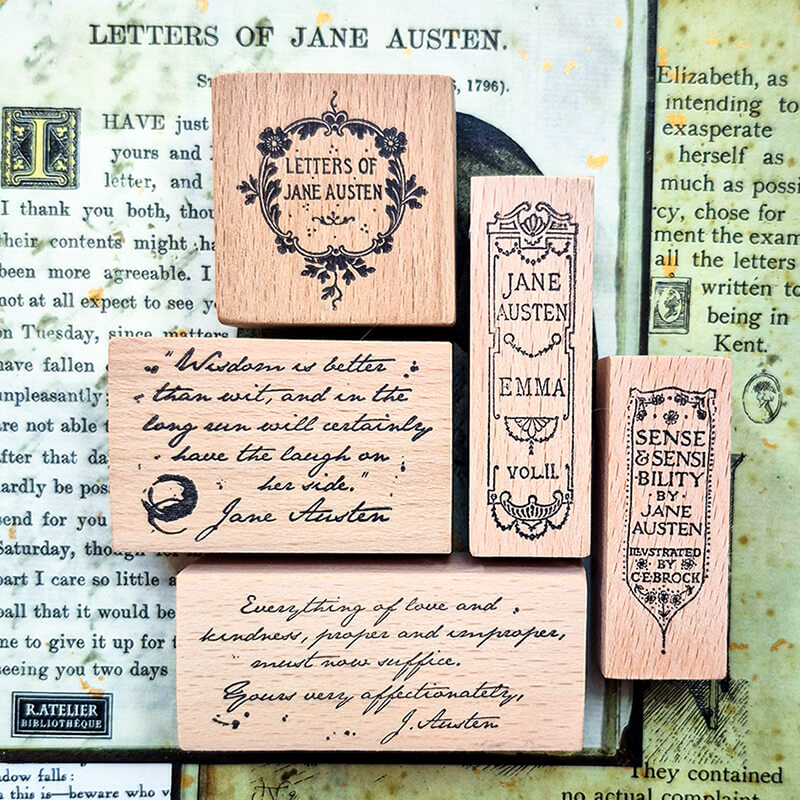 LETTERS OF JANE AUSTEN.
1796).
I
HAVE just
yours and
letter, and
I thank you both,
their contents might
been more agreeable. I
not at all expect to see
on Tuesday, since matters
have fallen
unpleasantly;
are not able
after that
send for you
Saturday, though
part I care so little
ball that it would be
me to give it up for
seeing you two days
R.ATELIER
BIBLIOTHÈQUE
LETTERS OF
JANE AUSTEN
"Wisdom is better
than wit, and in the
long run will certainly
have the laugh on
her side."
Jane Austen
Everything of love and
kindness, proper and improper,
must now suffice.
Yours very affectionately,
J. Austen
JANE
AUSTEN
EMMA
VOL.II.
SENSE
& SENSI
-BILITY
BY
JANE
AUSTEN
ILLUSTRATED
BY
C.E.BROCK
Elizabeth, as
intending to
exasperate
herself as
much as
chose for
ment the
all the letters
written to
being in
Kent.
falls:
this is—beware who
They contained
no actual complaint